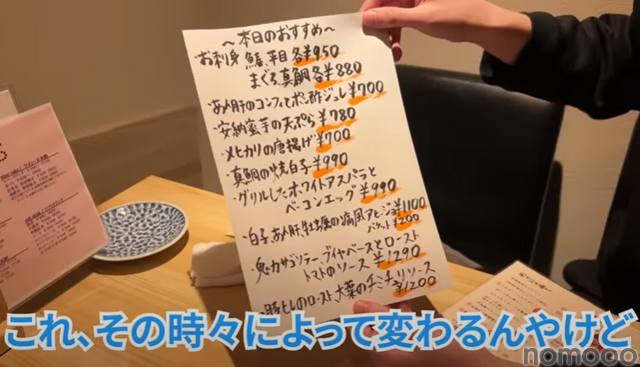 ～本日のおすすめ～
・お刺身 鯖、平目 各¥950
まぐろ、真鯛 各¥880
・あん肝のコンフィとポン酢ジュレ ¥700
・安納蜜芋の天ぷら ¥780
・メヒカリの唐揚げ ¥700
・真鯛の焼白子 ¥990
・グリルしたホワイトアスパラと
ベーコンエッグ ¥990
・白子、あん肝、牡蠣の痛風アヒージョ ¥1100
バケット ¥200
・鬼カサゴソテー、ブイヤベースとロースト
トマトのソース ¥1290
ロースト 大葉のチミチュリソース
¥1200
これ、その時々によって変わるんやけど
nomooo